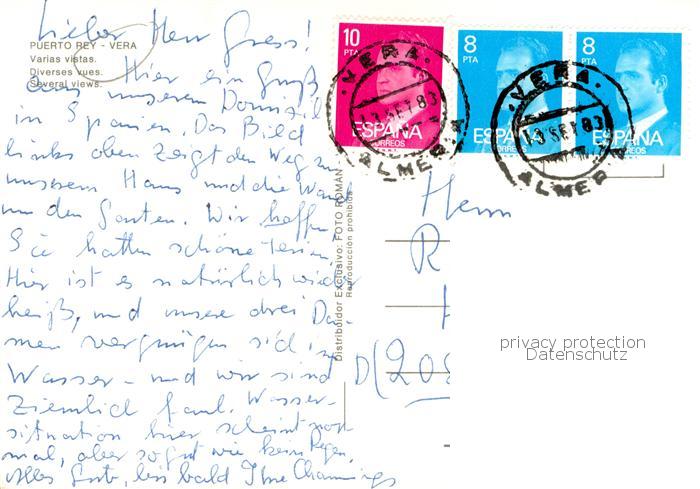 PUERTO REY - VERA
Varias vistas.
Diverses vues.
Several views.
Lieber Herr Gress!
Hier ein Gruß
aus unserem Domizil
in Spanien. Das Bild
links oben zeigt den Weg zu
unserem Haus und die Wand
um den Garten. Wir hoffen
Sie hatten schöne Ferien.
Hier ist es natürlich wieder
heiß, und unsere drei Da-
men vergnügen sich im
Wasser - und wir sind
ziemlich faul. Wasser-
situation hier scheint nor-
mal, aber sogut wie kein Regen.
Alles Gute, bis bald Ihre
Distribuidor Exclusivo: FOTO ROMAN
Reproducción prohibida
10
PTA
ESPAÑA
CORREOS
8
PTA
ESPAÑA
CORREOS
8
PTA
ESPAÑA
CORREOS
VERA
SET 83
ALMERIA
VERA
SET 83
ALMERIA
Herrn
R
D(20
privacy protection
Datenschutz